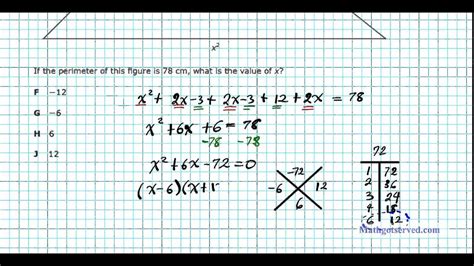 x²
If the perimeter of this figure is 78 cm, what is the value of x?
F −12
G −6
H 6
J 12
x² + 2x-3 + 2x-3 + 12 + 2x = 78
x² + 6x + 6 = 78
-78 -78
x² + 6x - 72 = 0
(x-6)(x+1
-72
-6 12
6
72
1 72
2 36
3 24
4 18
6 12
Mathgotserved.com